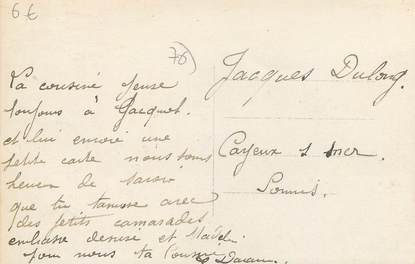 6€
76
Jacques Dulong.
Ta cousine pense
toujours à Jacquot.
et lui envoie une
petite carte nous somms
heureu de savoir
que tu t'amuse avec
des petits camarades
embrasse denise et
pour nous ta Cousine
Cayeux s mer.
Somme.